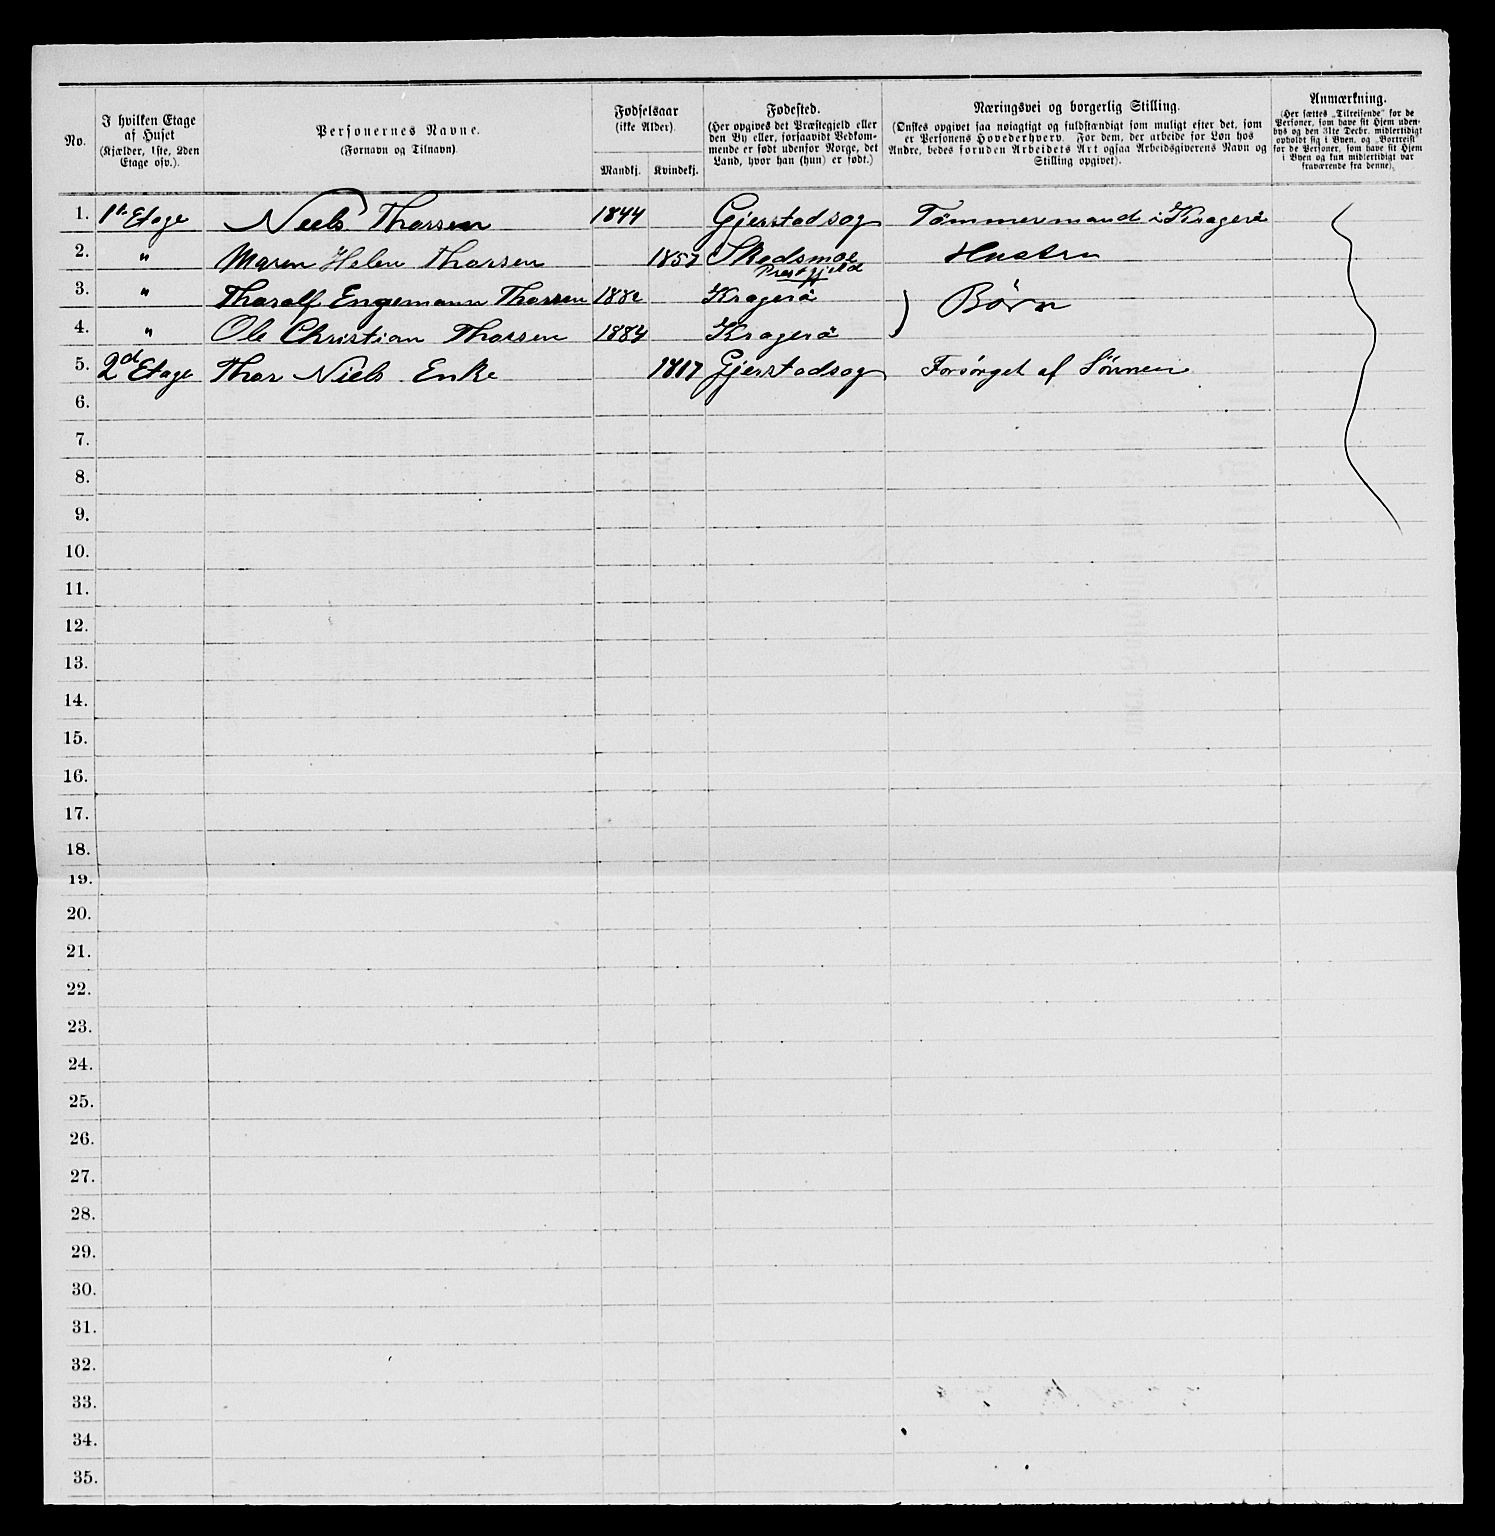 No.
I hvilken Etage
af Huset
(Kjælder, 1ste, 2den
Etage osv.).
Personernes Navne.
(Fornavn og Tilnavn).
Fødselsaar
(ikke Alder).
Mandkj. Kvindekj.
Fødested.
(Her opgives det Præstegjeld eller
den By eller, forsaavidt Vedkom-
mende er født udenfor Norge, det
Land, hvor han (hun) er født.)
Næringsvei og borgerlig Stilling.
(Ønskes opgivet saa nøiagtigt og fuldstændigt som muligt efter det, som
er Personens Hovederhverv. For dem, der arbeide for Løn hos
Andre, bedes foruden Arbeidets Art ogsaa Arbeidsgiverens Navn og
Stilling opgivet).
Anmærkning.
(Her sættes „Tilreisende“ for de
Personer, som have sit Hjem uden-
bys og den 31te Decbr. midlertidigt
opholdt sig i Byen, og „Bortreist“
for de Personer, som have sit Hjem
i Byen og kun midlertidigt var
fraværende fra denne).
1. 1st Etage Neels Thorsen 1844 Gjerstadsog Tømmermand i Kragerö
2. " Maren Helen Thorsen 1857 Skedsmoe Hustru
Prestgjeld
3. " Tharalf Engemann Thorsen 1882 Kragerö
Børn
4. " Ole Christian Thorsen 1884 Kragerö
5. 2d Etage Thor Niels Enke 1817 Gjerstadsog Forsörget af Sönnen
6.
7.
8.
9.
10.
11.
12.
13.
14.
15.
16.
17.
18.
19.
20.
21.
22.
23.
24.
25.
26.
27.
28.
29.
30.
31.
32.
33.
34.
35.